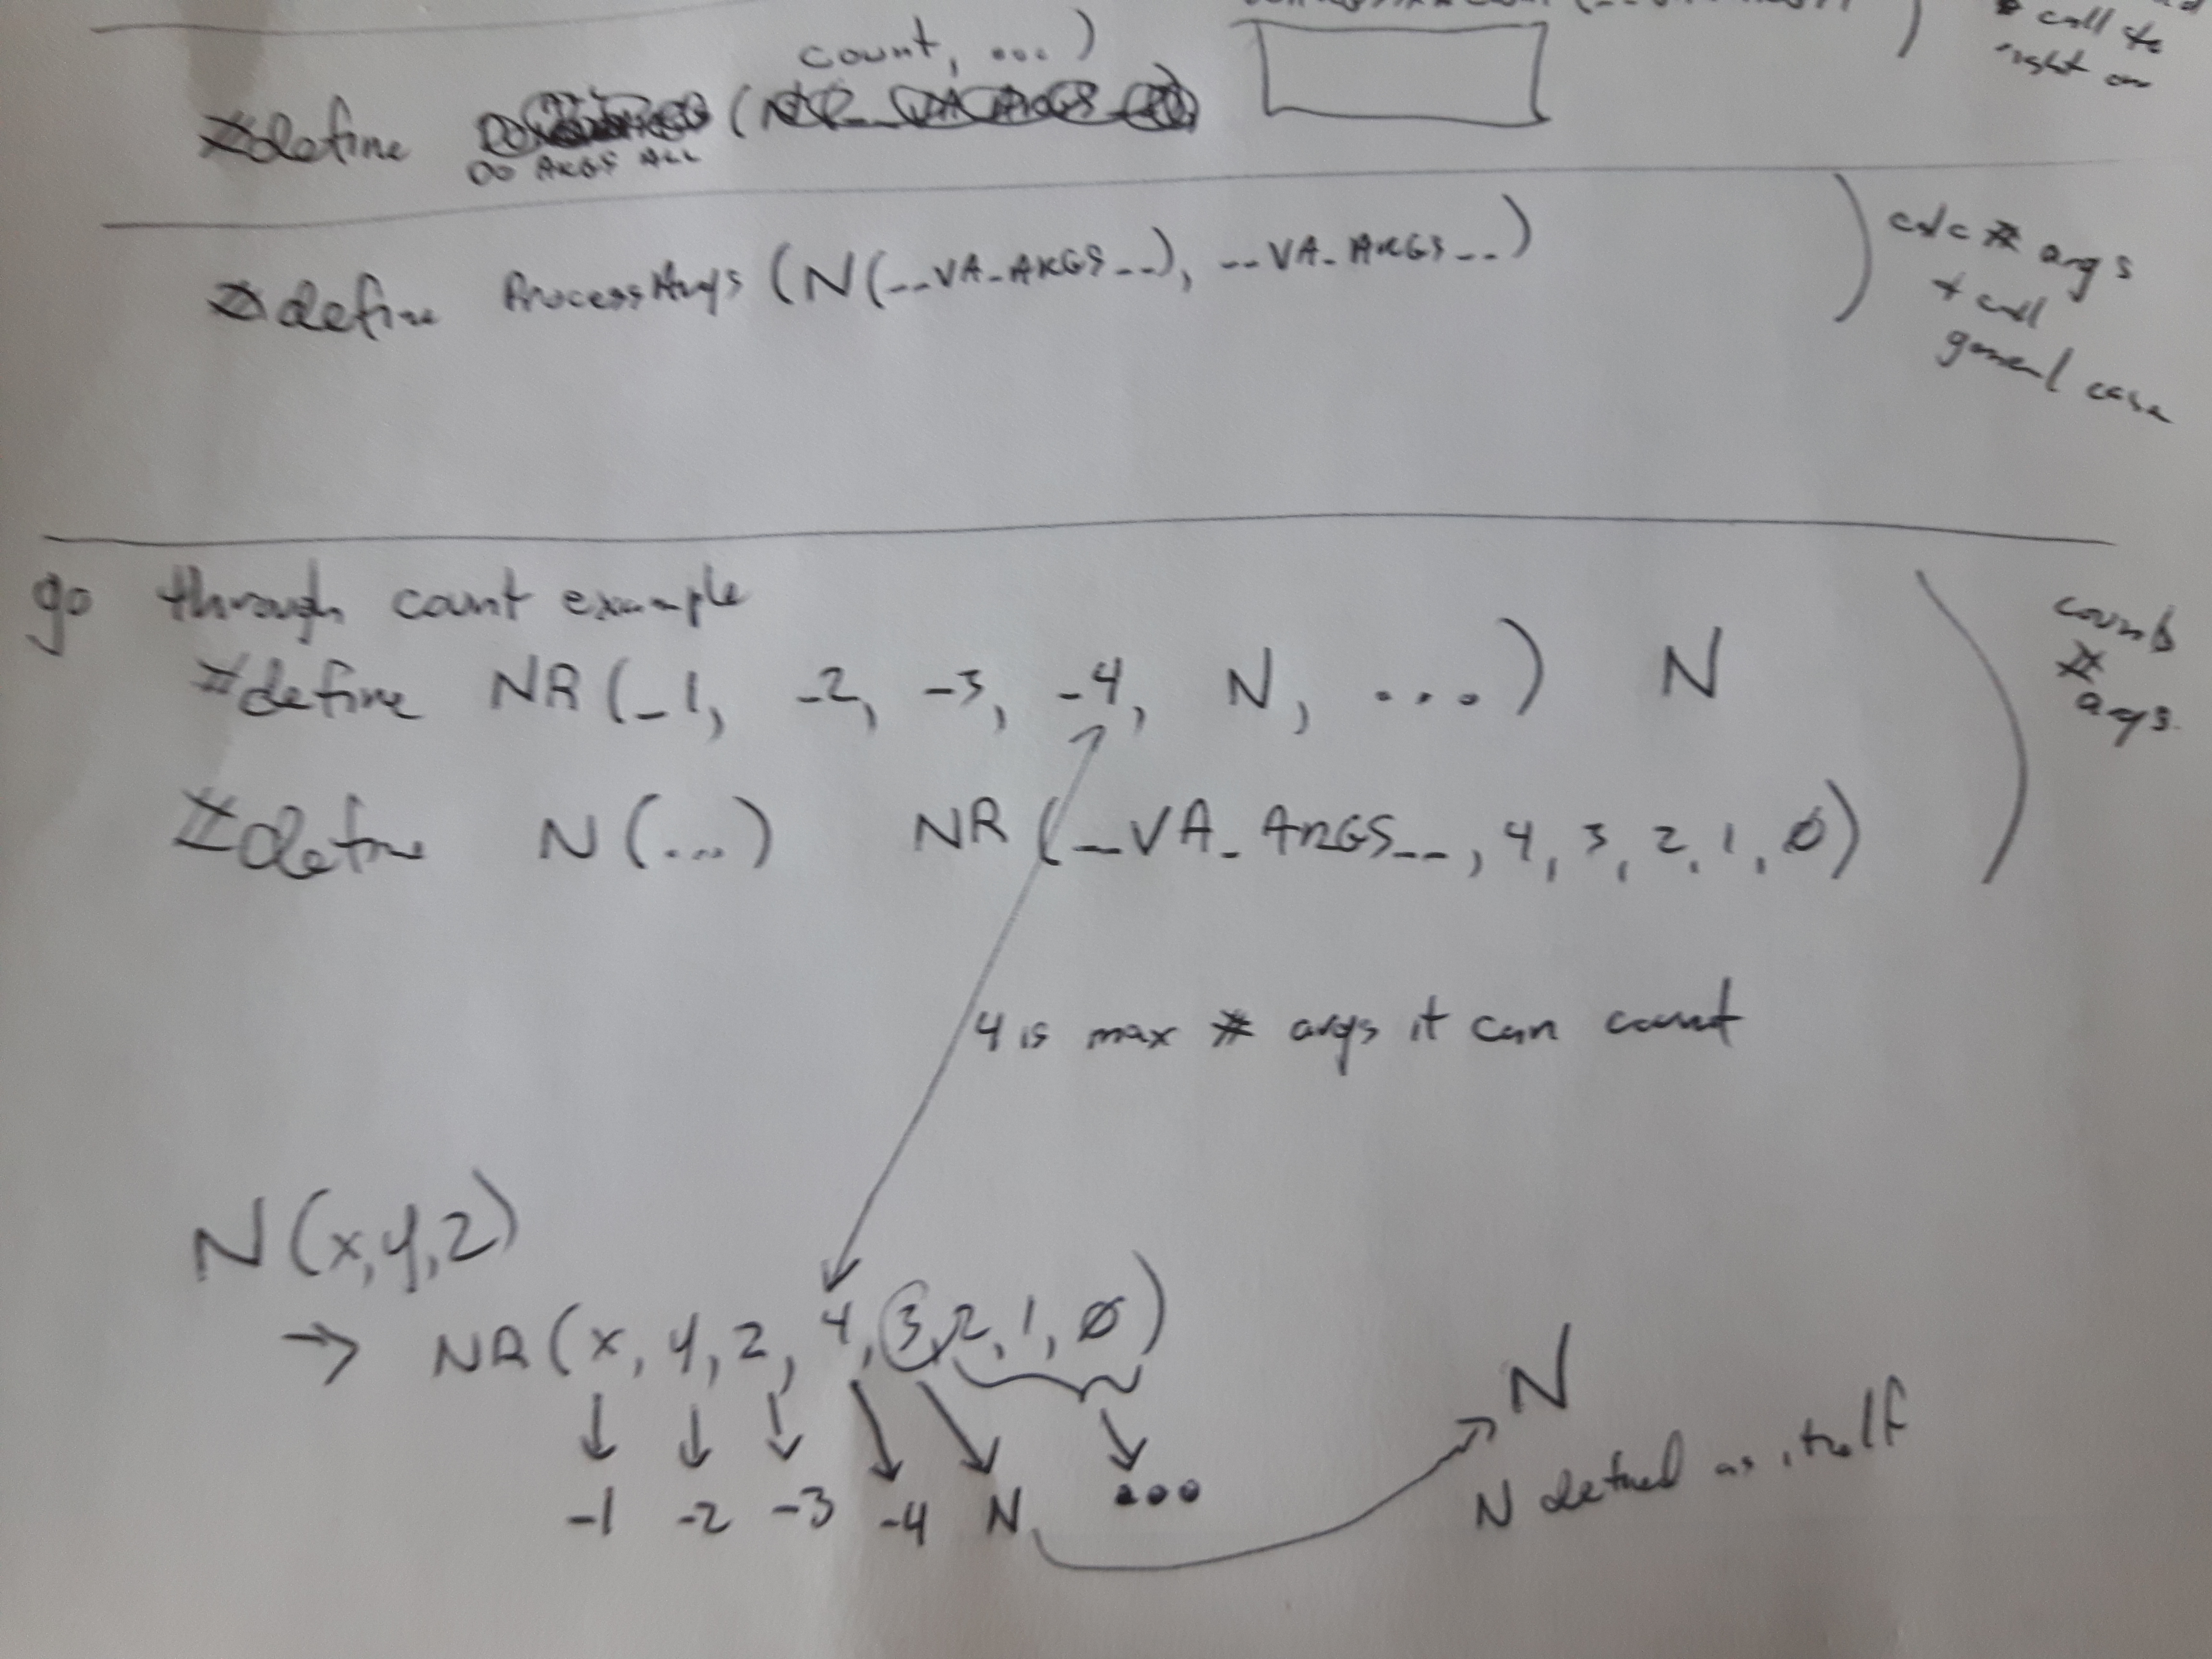 call to
right one
count, ...)
#define DO ARGS ALL (
#define ProcessArgs (N(__VA_ARGS__), __VA_ARGS__)
calc # args
+ call
general case
go through count example
#define NR(_1, _2, _3, _4, N, ...) N
#define N(...) NR(__VA_ARGS__, 4, 3, 2, 1, 0)
counts
#
args.
4 is max # args it can count
N(x,y,z)
→ NR(x, y, z, 4, 3, 2, 1, 0)
_1 _2 _3 _4 N ...
N
N defined as itself